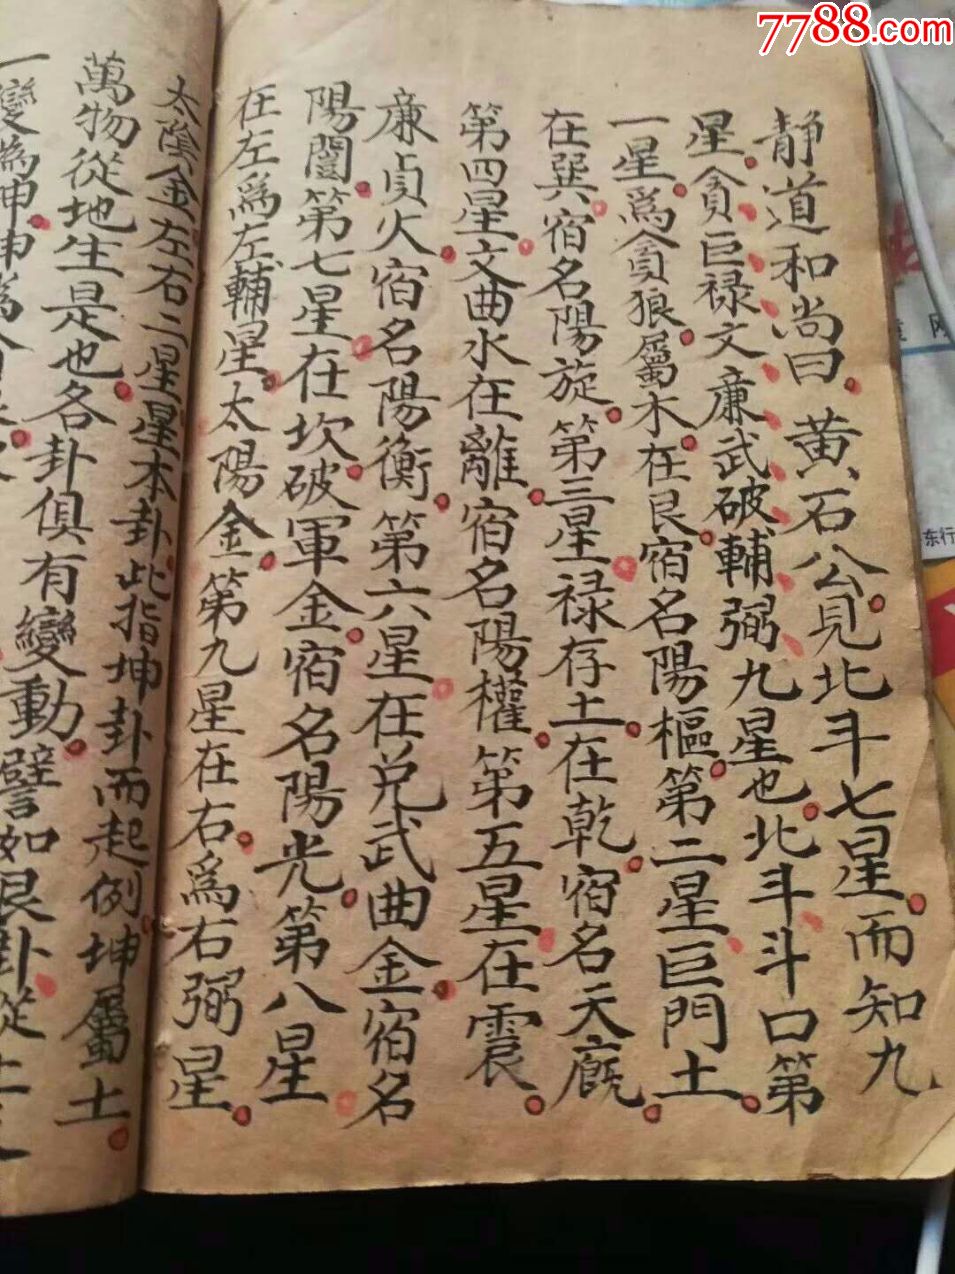 7788.com
静道和尚曰黄石公見北斗七星而知九
星貪巨禄文廉武破輔弼九星也北斗斗口第
一星爲貪狼屬木在艮宿名陽樞第二星巨門土
在巽宿名陽旋第三星禄存土在乾宿名天廐
第四星文曲水在離宿名陽權第五星在震
廉貞火宿名陽衡第六星在兑武曲金宿名
陽闓第七星在坎破軍金宿名陽光第八星
在左爲左輔星太陽金第九星在右爲右弼星
太陰金左右二星星本卦此指坤卦而起例坤屬土
萬物從地生是也各卦俱有變動譬如艮卦從上
一變為坤坤爲
东行